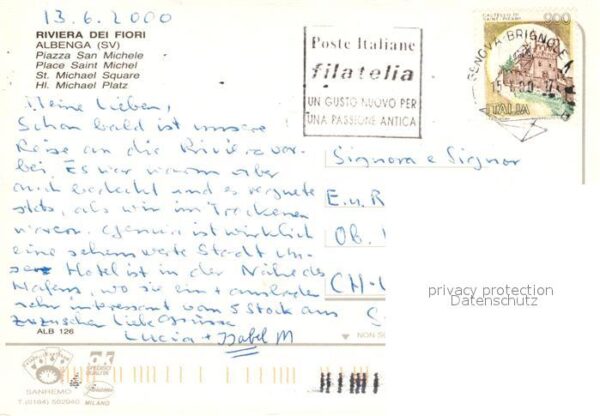 13.6.2000
RIVIERA DEI FIORI
ALBENGA (SV)
Piazza San Michele
Place Saint Michel
St. Michael Square
Hl. Michael Platz
Poste Italiane
filatelia
UN GUSTO NUOVO PER
UNA PASSIONE ANTICA
CASTELLO DI
900
GENOVA BRIGNOLE
ITALIA
Meine Lieben,
Schon bald ist unsere
Reise an die Riviera vor-
bei. Es war warm aber
auch bedeckt und es regnete
stets, als wir im Trockenen
waren. Genua ist wirklich
eine sehenswerte Stadt. Un-
ser Hotel ist in der Nähe des
Hafens, wo sie ein + ausladen
sehr interessant vom 5. Stock aus
zuzusehen. Liebe Grüsse
Lucia + Isabel M
Signora e Signor
E. u. R
Ob.
CH-
S
privacy protection
Datenschutz
ALB 126
SANREMO
MILANO